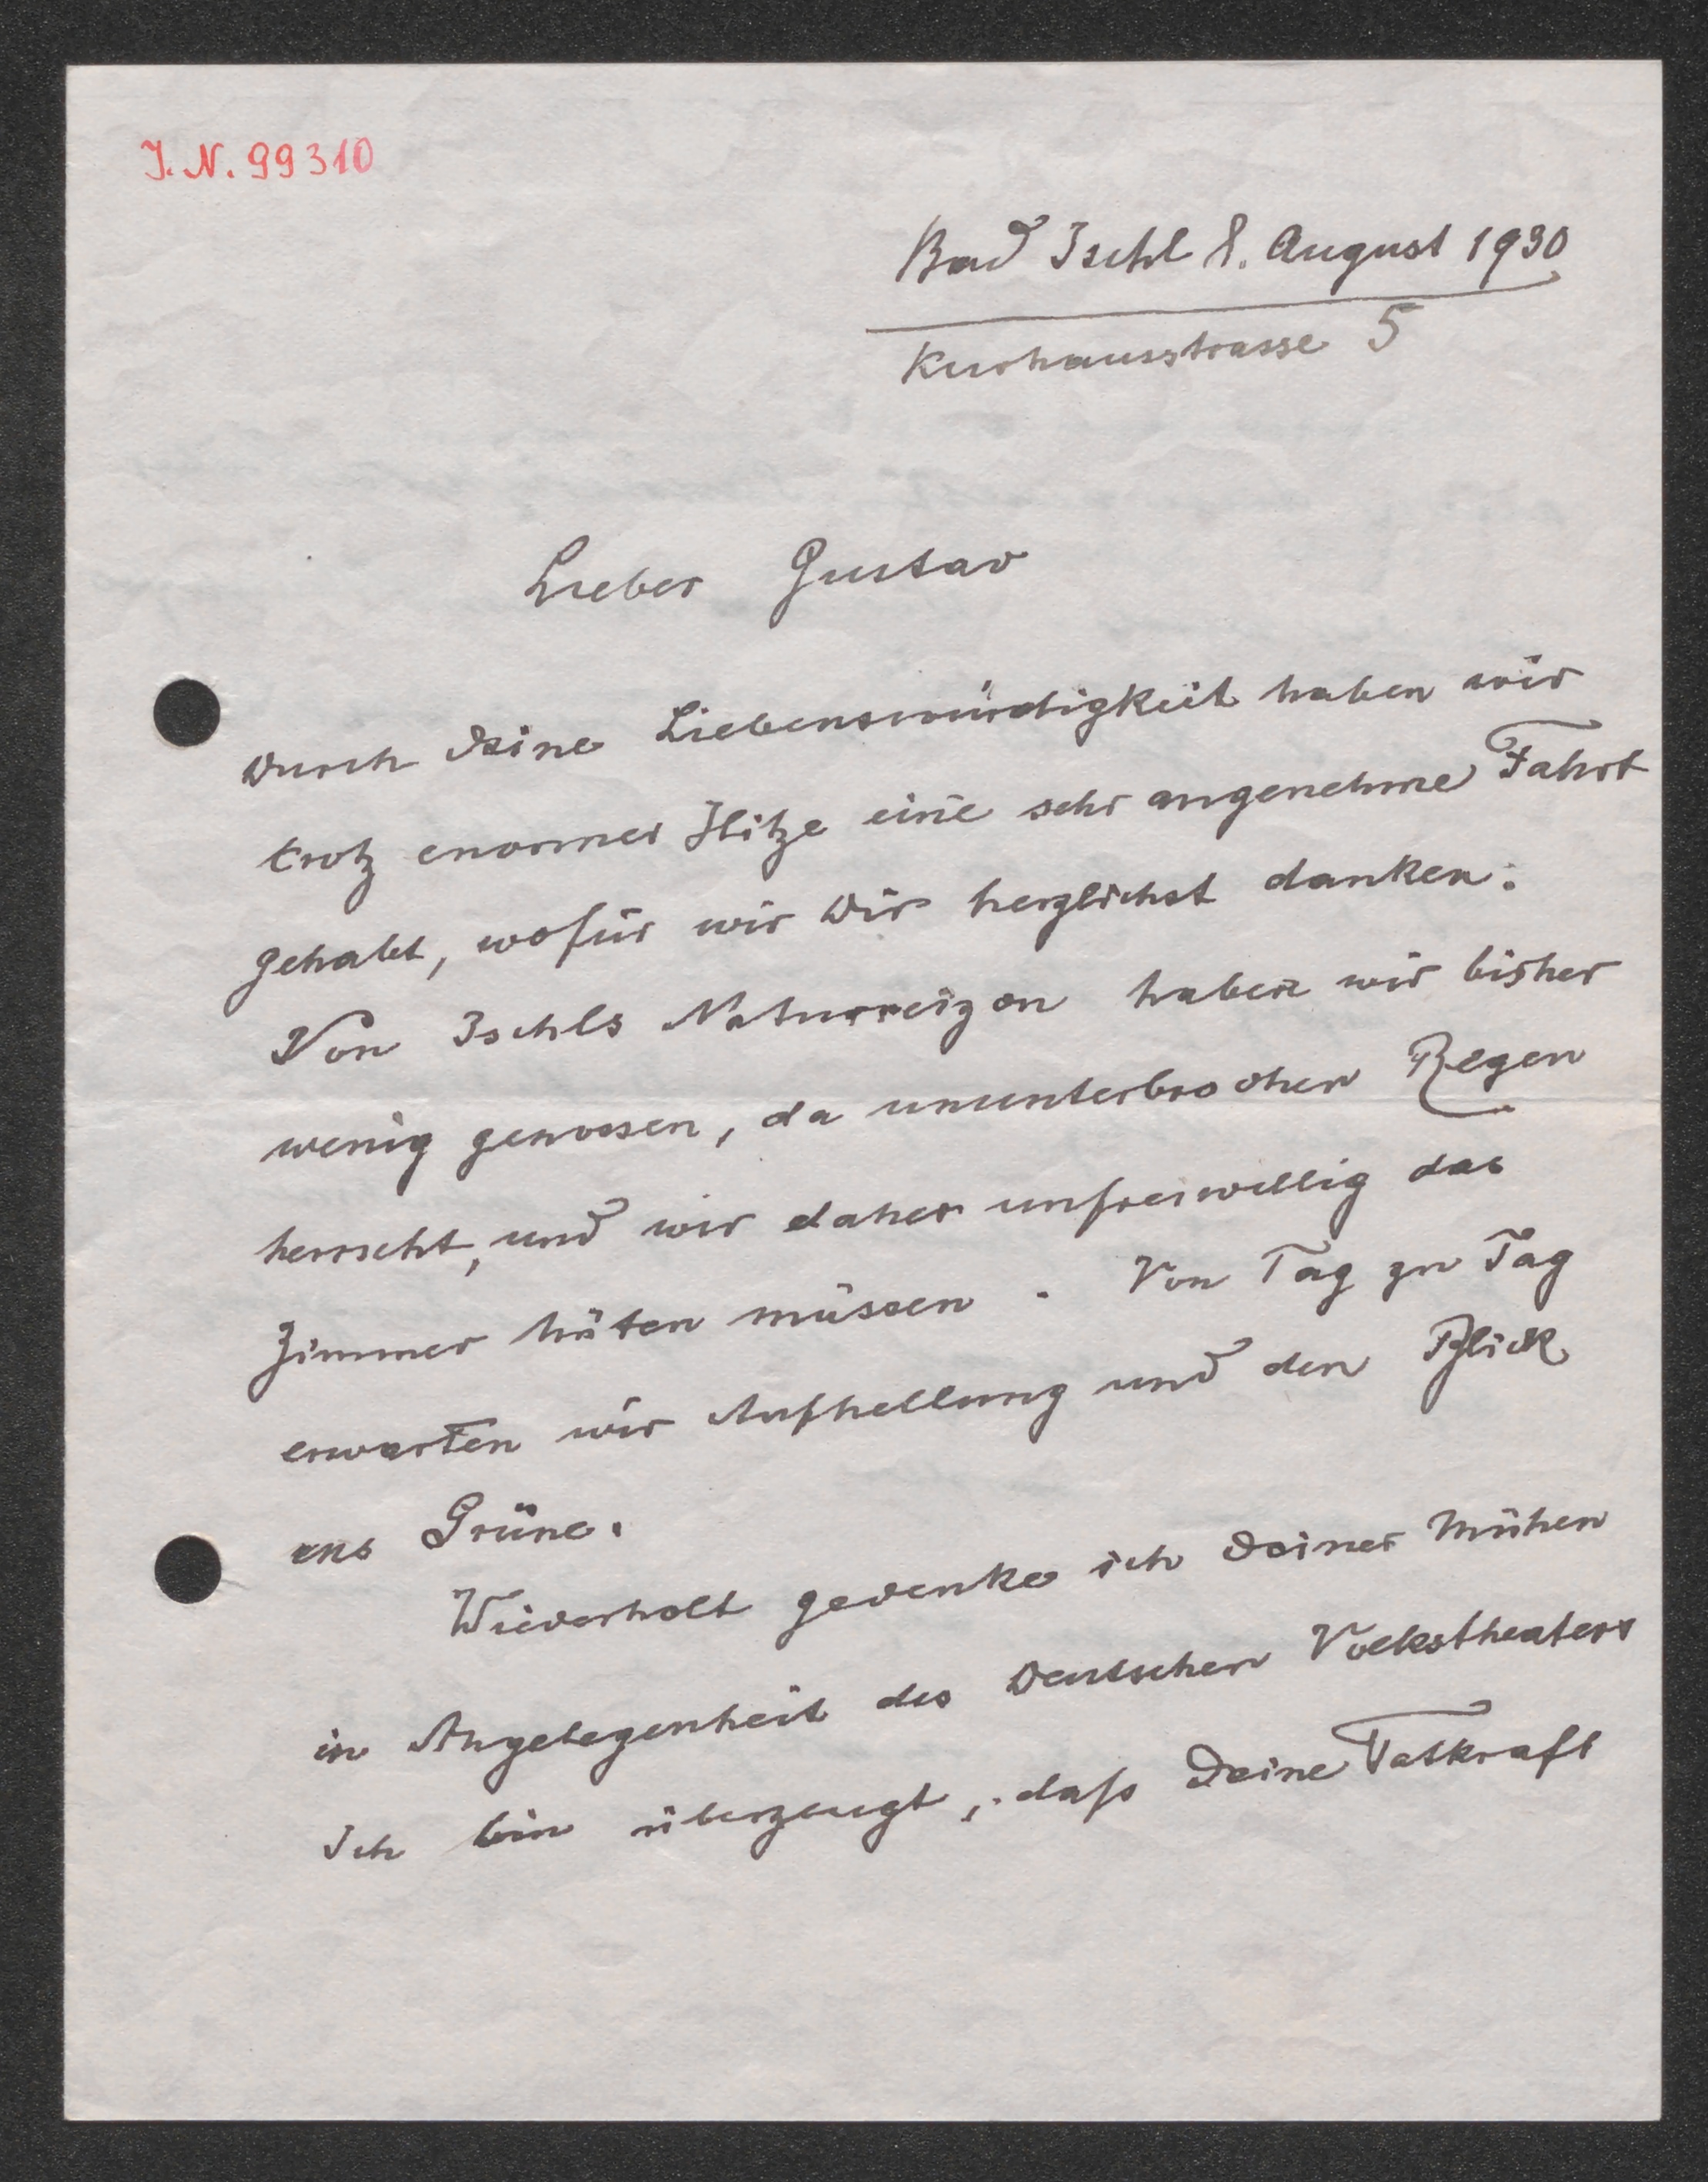 I. N. 99310
Bad Ischl 8. August 1930
Kurhausstrasse 5
Lieber Gustav
Durch Deine Liebenswürdigkeit haben wir
trotz enormer Hitze eine sehr angenehme Fahrt
gehabt, wofür wir Dir herzlichst danken.
Von Ischls Naturreizen haben wir bisher
wenig genossen, da ununterbrochen Regen
herrscht, und wir daher unfreiwillig das
Zimmer hüten müssen. Von Tag zu Tag
erwarten wir Aufhellung und den Blick
ins Grüne.
Wiederholt gedenke ich Deiner Mühen
in Angelegenheit des Deutschen Volkstheaters
Ich bin überzeugt, dass Deine Tatkraft